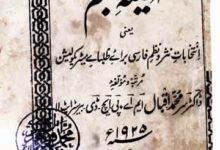 آئینہ عجم
یعنی
انتخابات نثر و نظم فارسی برائے طلبائے میٹریکولیشن
مرتبہ و مؤلفہ
ڈاکٹر سر محمد اقبال ایم۔اے۔پی۔ایچ۔ڈی۔بیرسٹرایٹ لا
۱۹۲۵